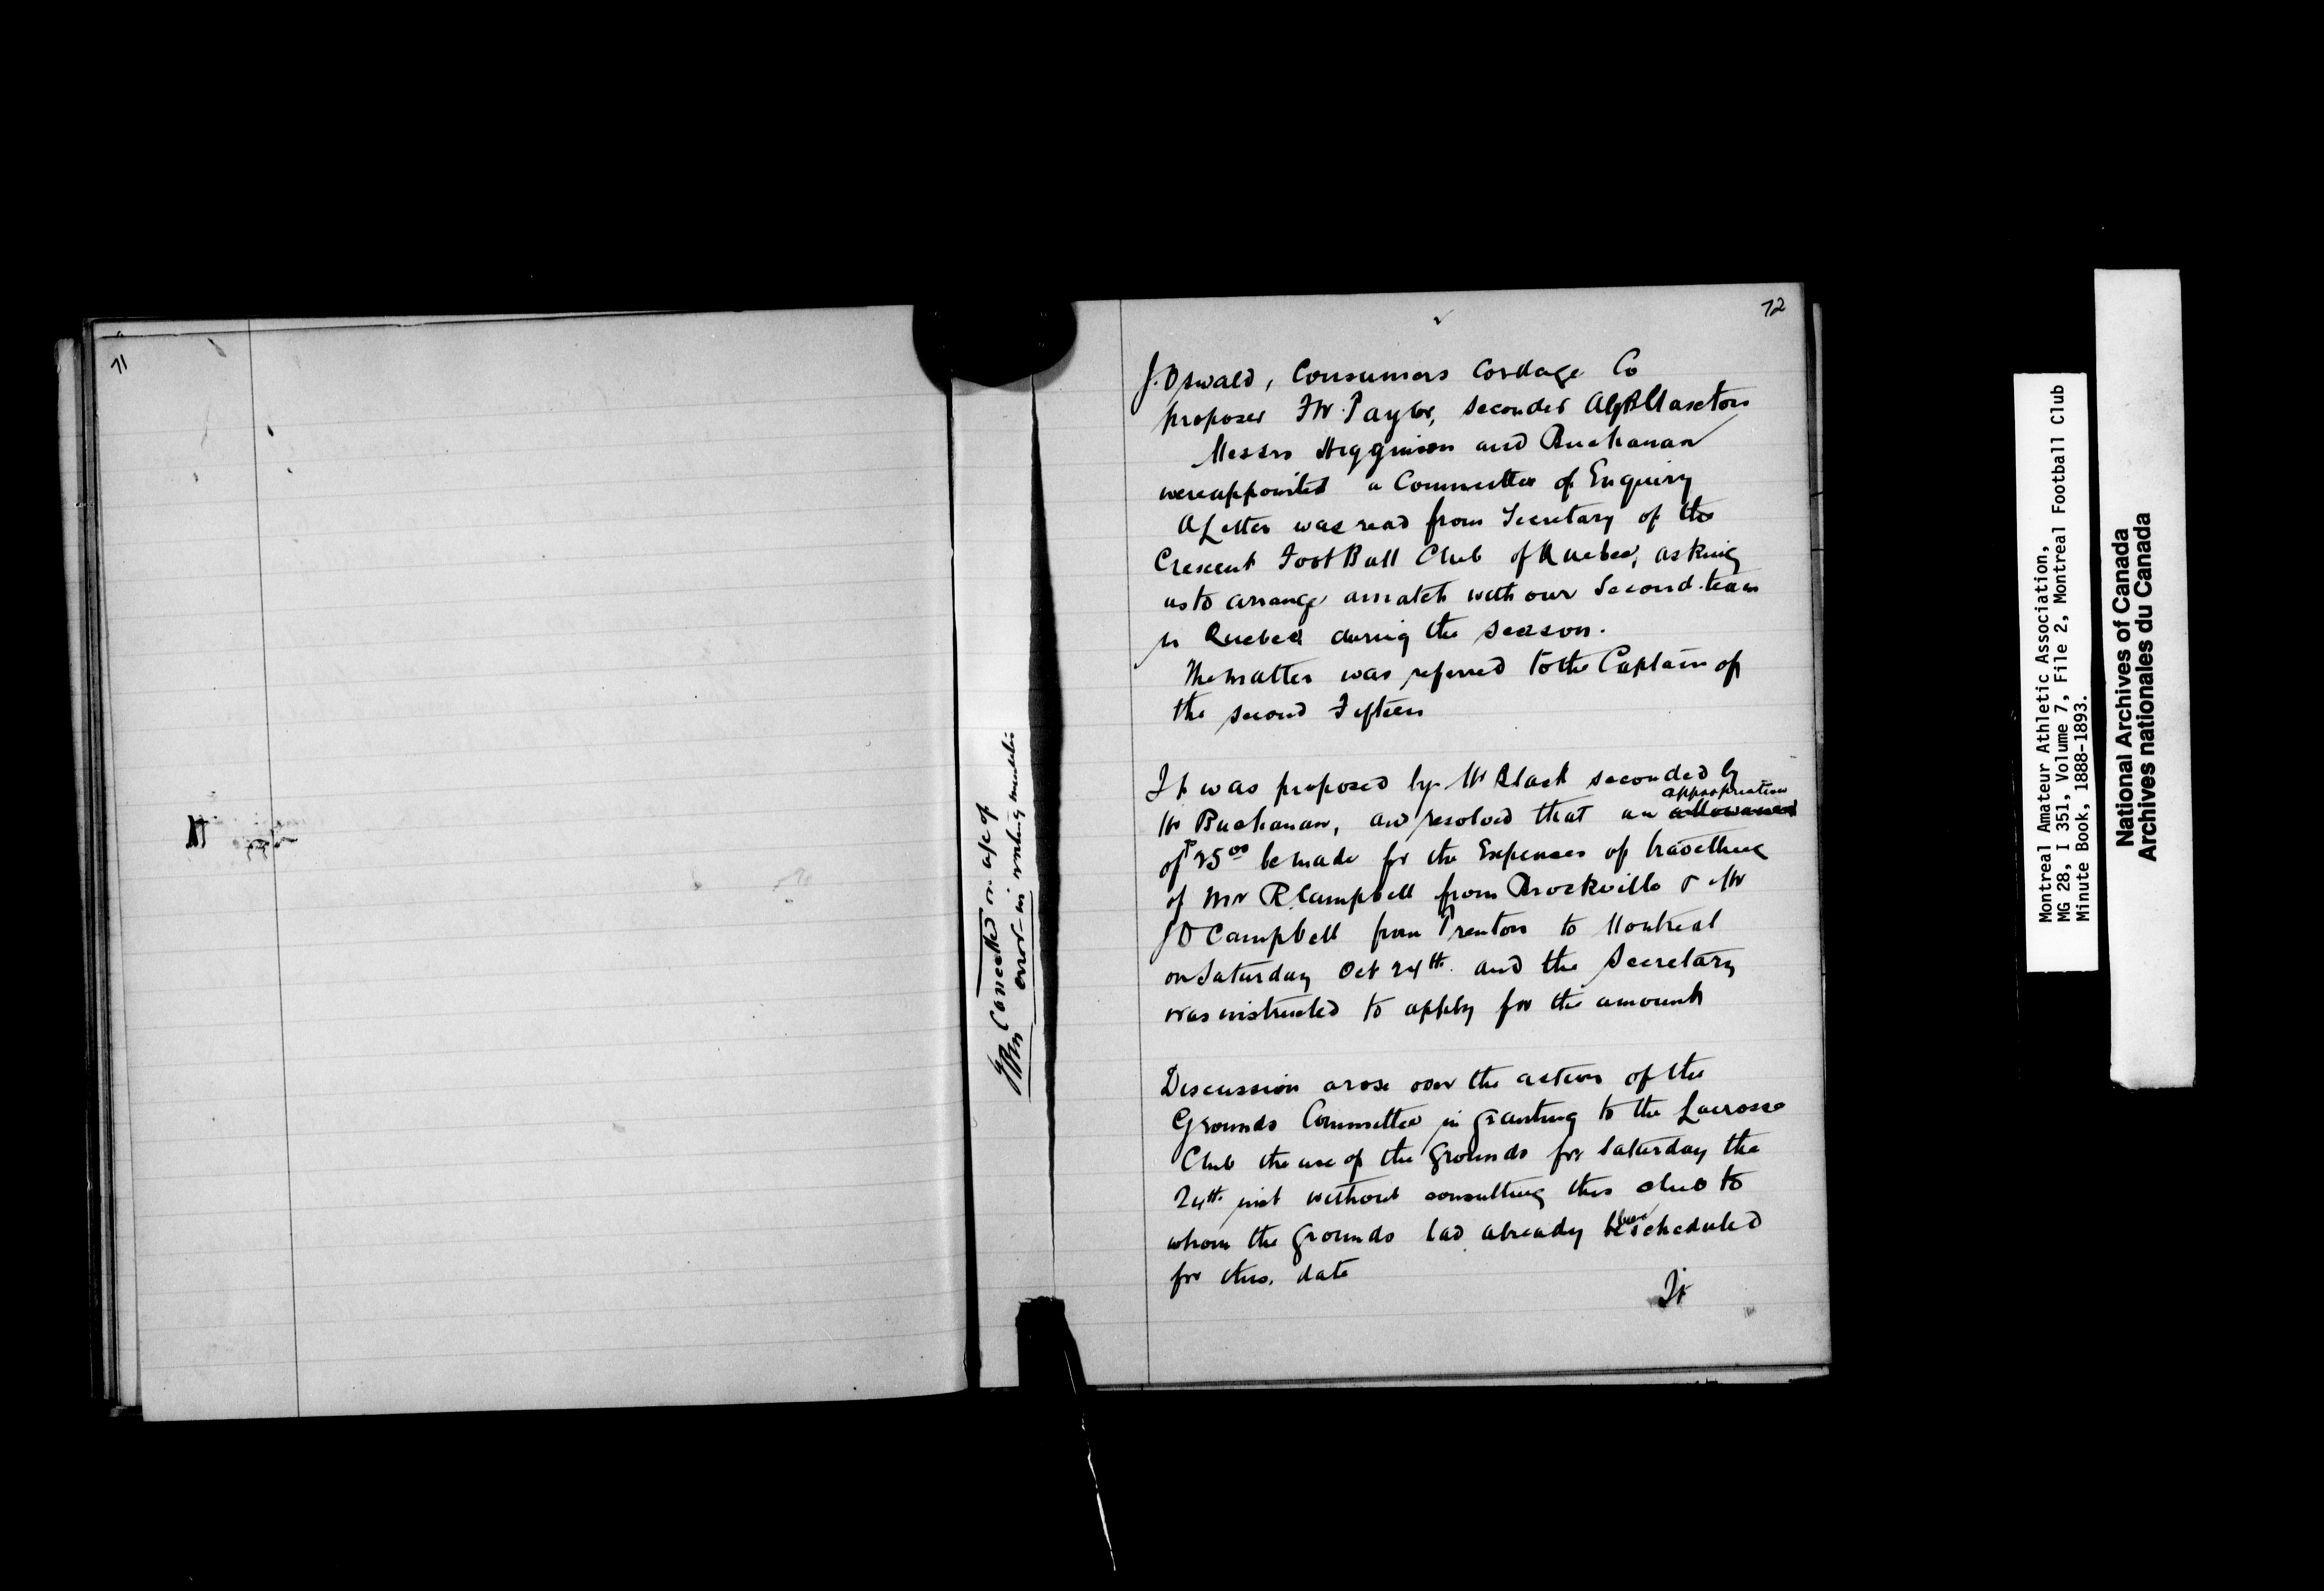 71
Cancelled on a/c of
error in writing minutes
72
J. Oswald, Consumers Cordage Co
proposer F W Taylor, seconder
Messrs Higginson and Buchanan
were appointed a Committee of Enquiry
A Letter was read from Secretary of the
Crescent Foot Ball Club of Quebec, asking
us to arrange a match with our Second team
in Quebec during the season.
The matter was referred to the Captain of
the second Fifteen
It was proposed by Mr Black seconded by
appropriation
Mr Buchanan, and resolved that an allowance
of $25 00 be made for the Expenses of travelling
of Mr R Campbell from Brockville & Mr
J D Campbell from Trenton to Montreal
on Saturday Oct 24th. and the Secretary
was instructed to apply for the amount
Discussion arose over the action of the
Grounds Committee in granting to the Lacrosse
Club the use of the Grounds for Saturday the
24th inst without consulting this club to
whom the grounds had already been scheduled
for this date
It
Montreal Amateur Athletic Association,
MG 28, I 351, Volume 7, File 2, Montreal Football Club
Minute Book, 1888-1893.
National Archives of Canada
Archives nationales du Canada